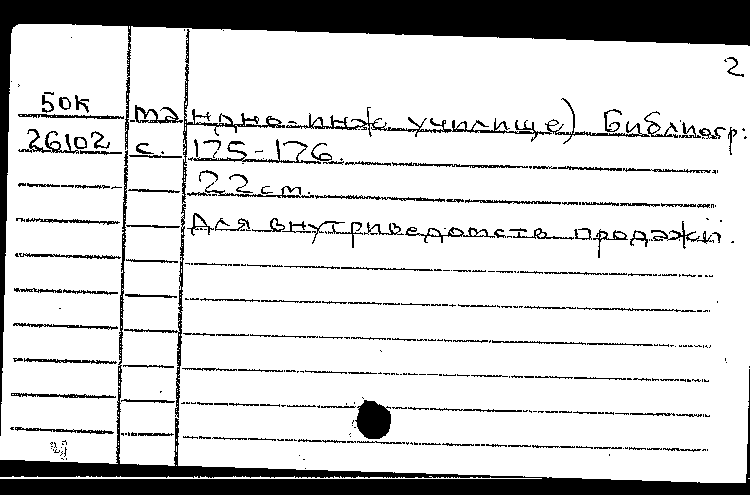 2
50к мандно-инж училище) Библиогр:
26102 с. 175-176.
22 см.
Для внутриведомств продажи.